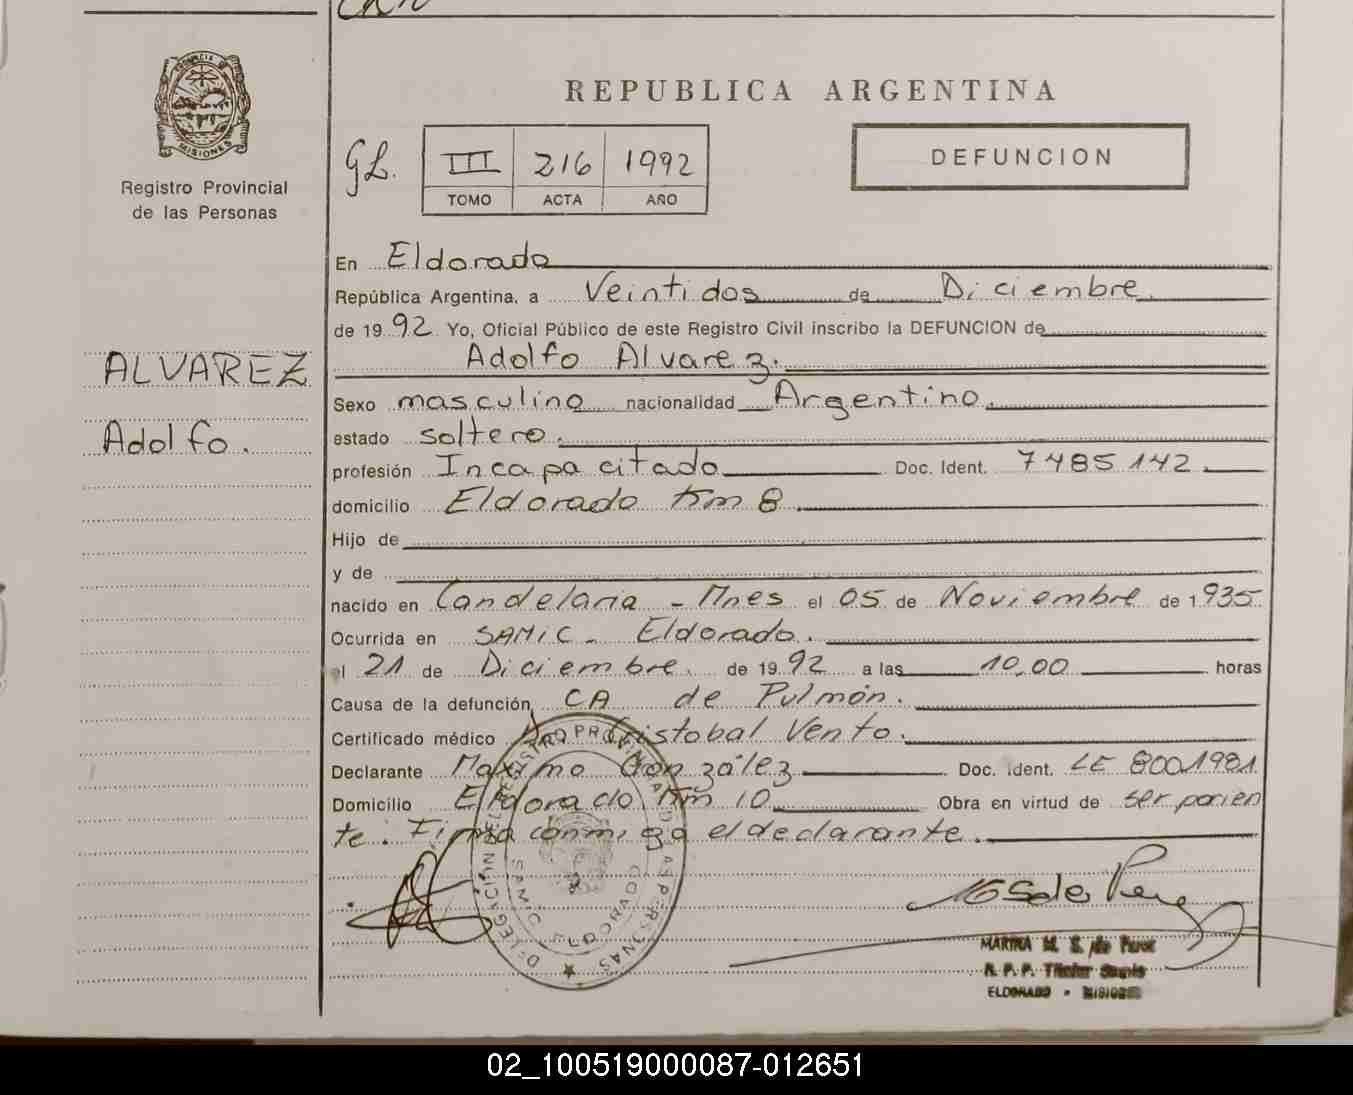 PROVINCIA DE
MISIONES
Registro Provincial
de las Personas
ALVAREZ
Adolfo.
REPUBLICA ARGENTINA
GL. III 216 1992
TOMO ACTA AÑO
DEFUNCION
En Eldorado
República Argentina, a Veintidos de Diciembre.
de 1992 Yo, Oficial Público de este Registro Civil inscribo la DEFUNCION de
Adolfo Alvarez.
Sexo masculino nacionalidad Argentino.
estado soltero.
profesión Incapacitado Doc. Ident. 7485142.
domicilio Eldorado Km 8.
Hijo de
y de
nacido en Candelaria - Mnes el 05 de Noviembre de 1935
Ocurrida en SAMIC - Eldorado.
el 21 de Diciembre. de 1992 a las 10,00 horas
Causa de la defunción CA de Pulmón.
Certificado médico Dr. Cristobal Vento.
Declarante Maximo González Doc. ident. LE 8001981
Domicilio Eldorado Km 10 Obra en virtud de ser parien
te. Firma conmigo el declarante.
REGISTRO PROVINCIAL DE LAS PERSONAS
DELEGACION
SAMIC ELDORADO
MARTHA M. S. de Perez
R. P. P. Titular
ELDORADO - MISIONES
02_100519000087-012651